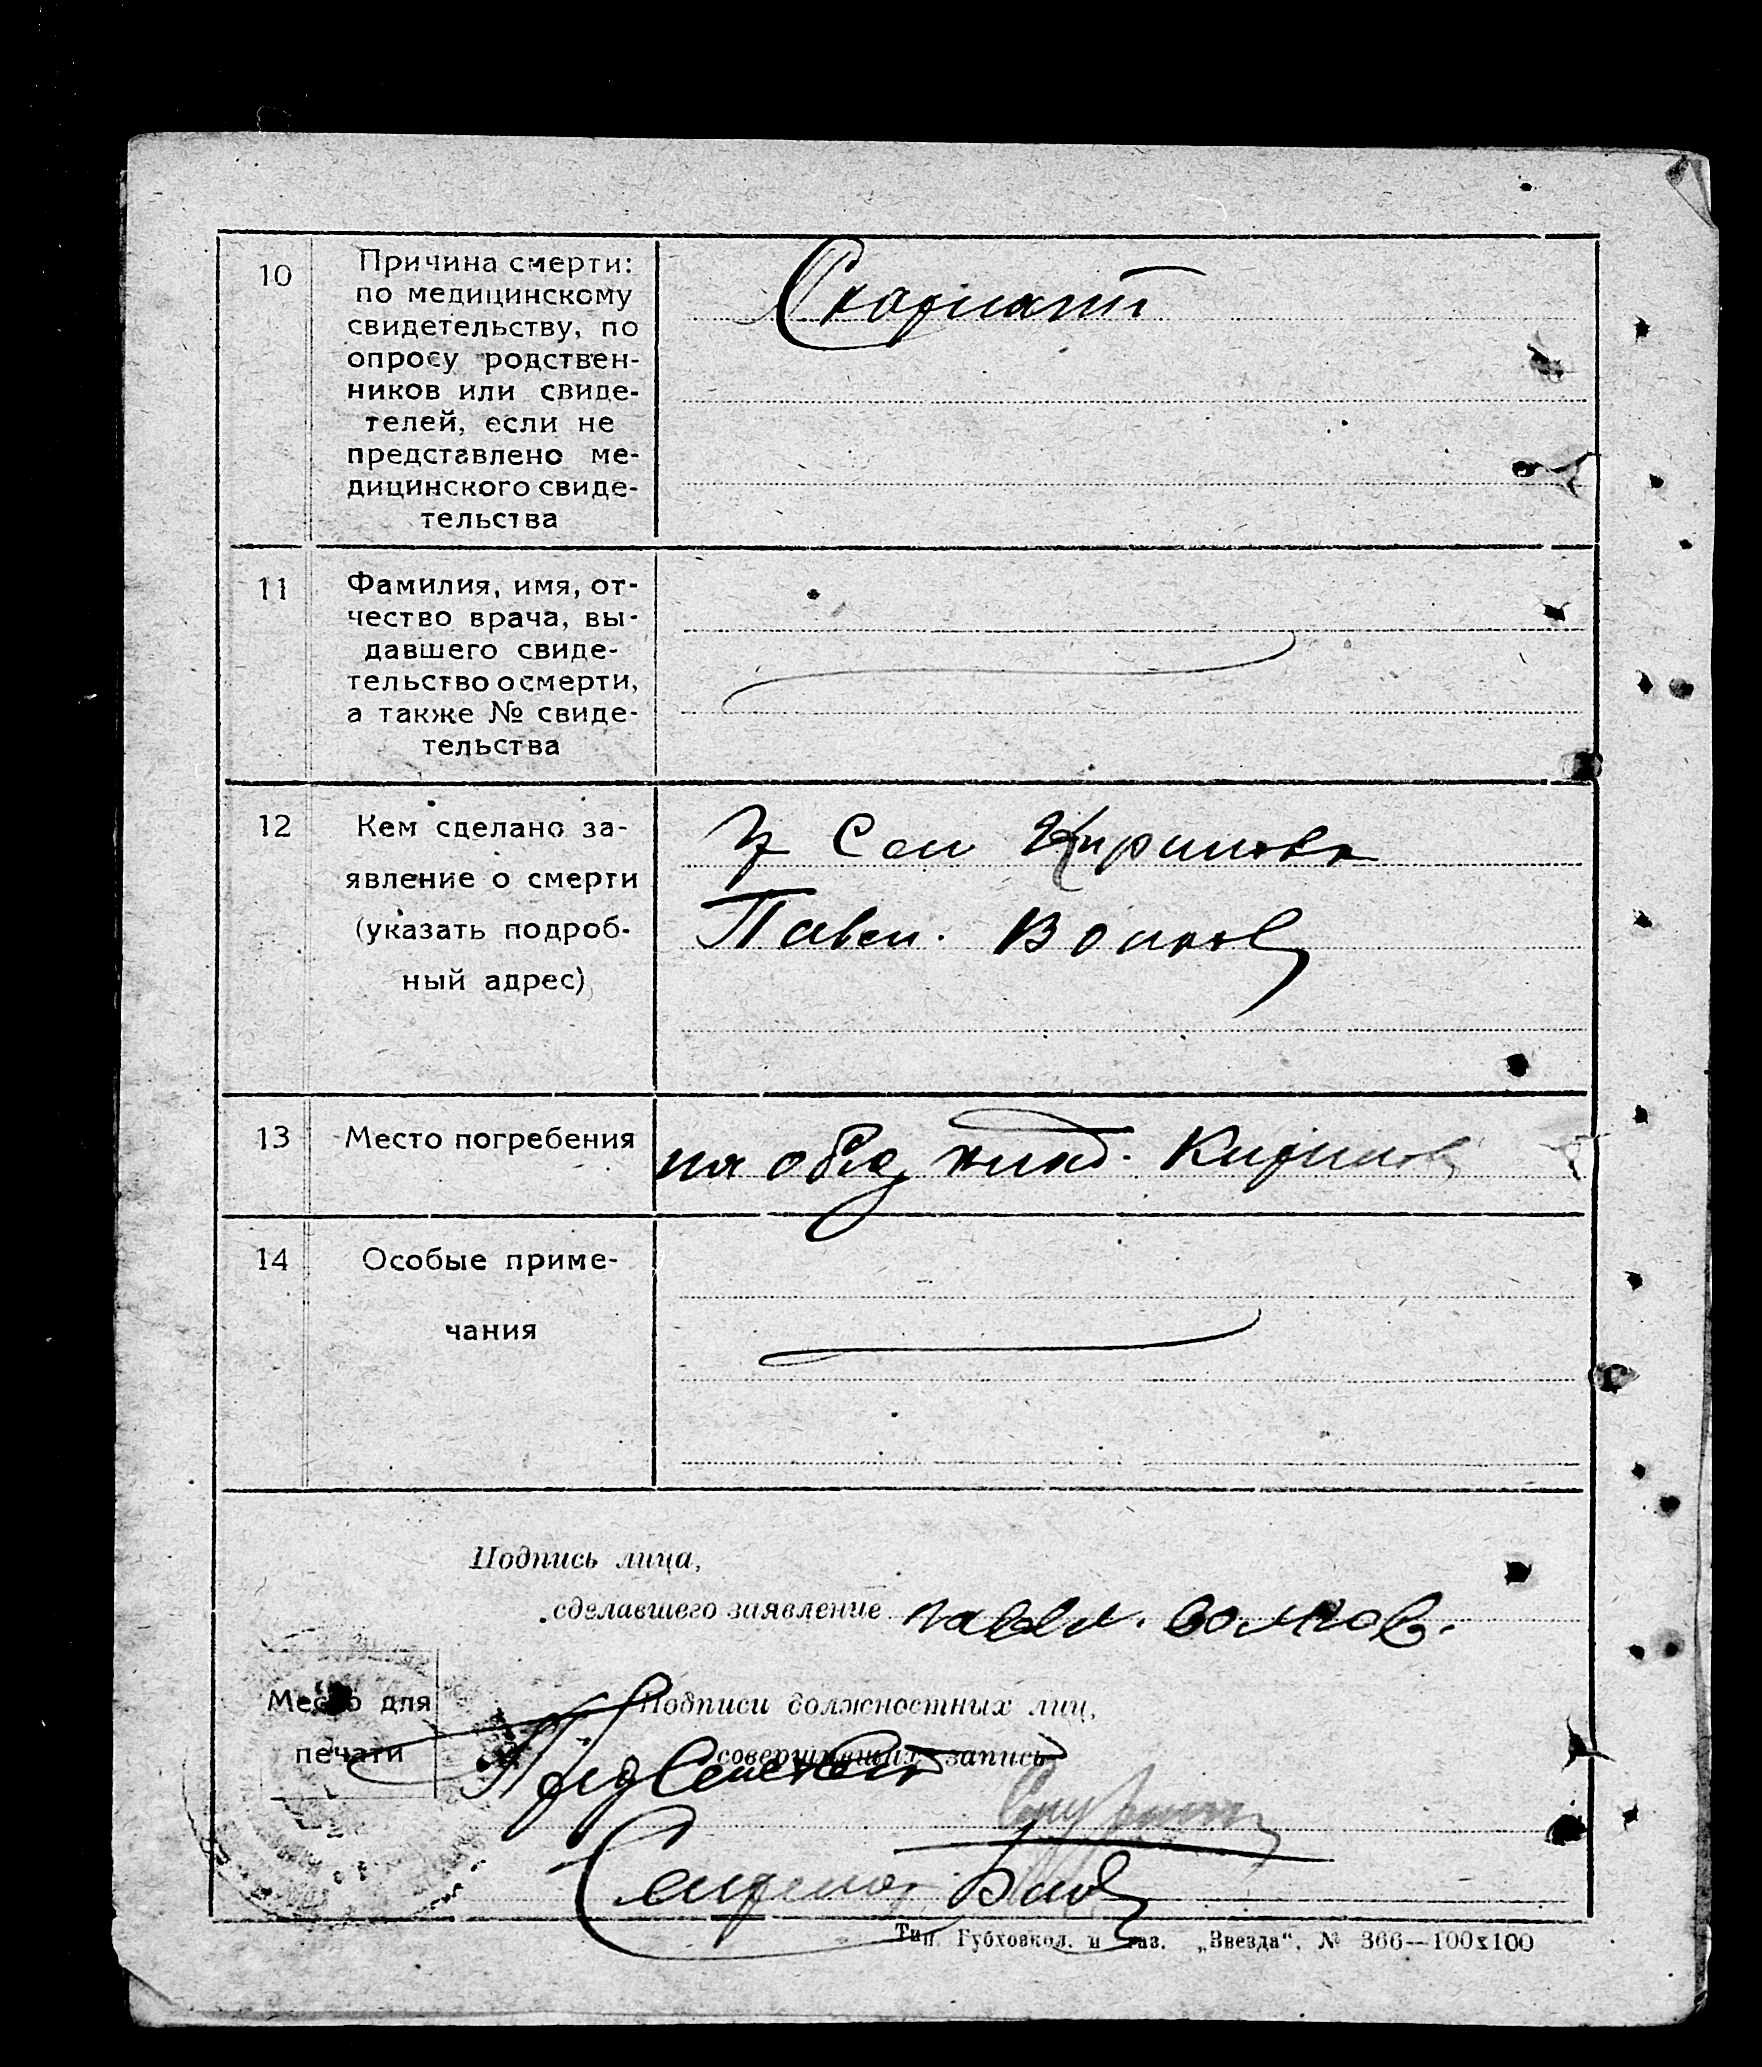 10
Причина смерти:
по медицинскому
свидетельству, по
опросу родствен-
ников или свиде-
телей, если не
представлено ме-
дицинского свиде-
тельства
Скарлати
11
Фамилия, имя, от-
чество врача, вы-
давшего свиде-
тельство о смерти,
а также № свиде-
тельства
12
Кем сделано за-
явление о смерти
(указать подроб-
ный адрес)
Сел Кирилов
Павел. Волков
13
Место погребения
на общ клад. Кирилов
14
Особые приме-
чания
Подпись лица,
сделавшего заявление павел. волков.
Место для
печати
Подписи должностных лиц,
совершивших запись
Пред Сельсовет
Секретарь
Тип. Губховкол. и газ. „Звезда“. № 366—100х100